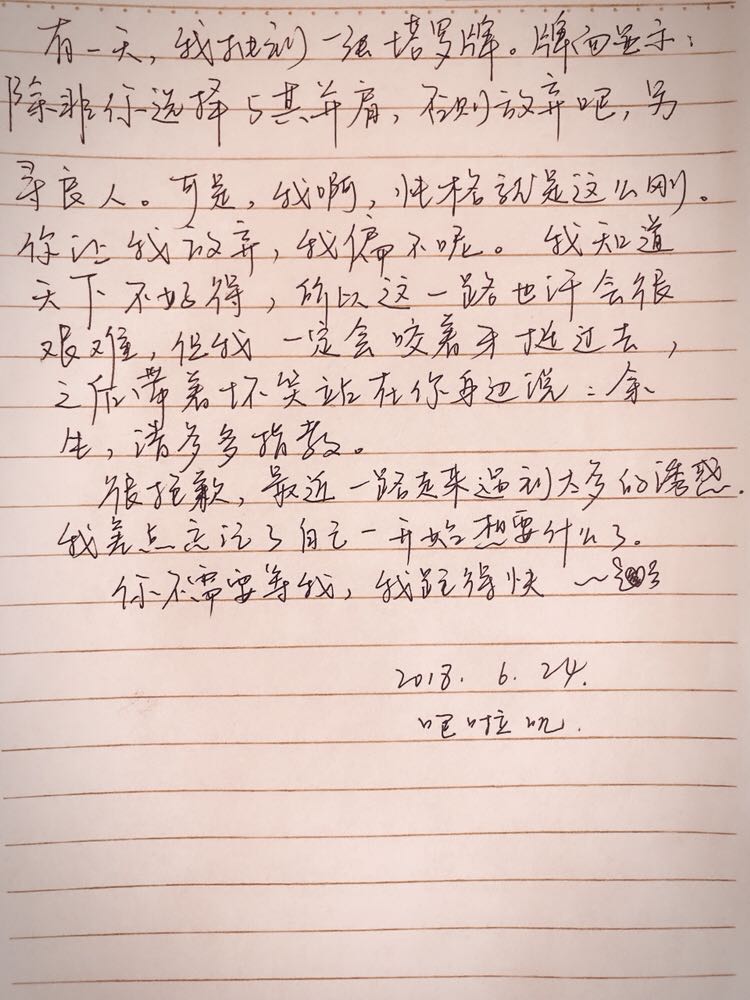 有一天，我抽到一张塔罗牌。牌面显示：
除非你选择与其并肩，否则放弃吧，另
寻良人。可是，我啊，性格就是这么刚。
你让我放弃，我偏不呢。我知道
天下不好得，所以这一路也许会很
艰难，但我一定会咬着牙挺过去，
之后带着坏笑站在你身边说：余
生，请多多指教。
很抱歉，最近一路走来遇到太多的诱惑.
我差点忘记了自己一开始想要什么了。
你不需要等我，我跑得快～
2018. 6. 24.
吧啦叽.